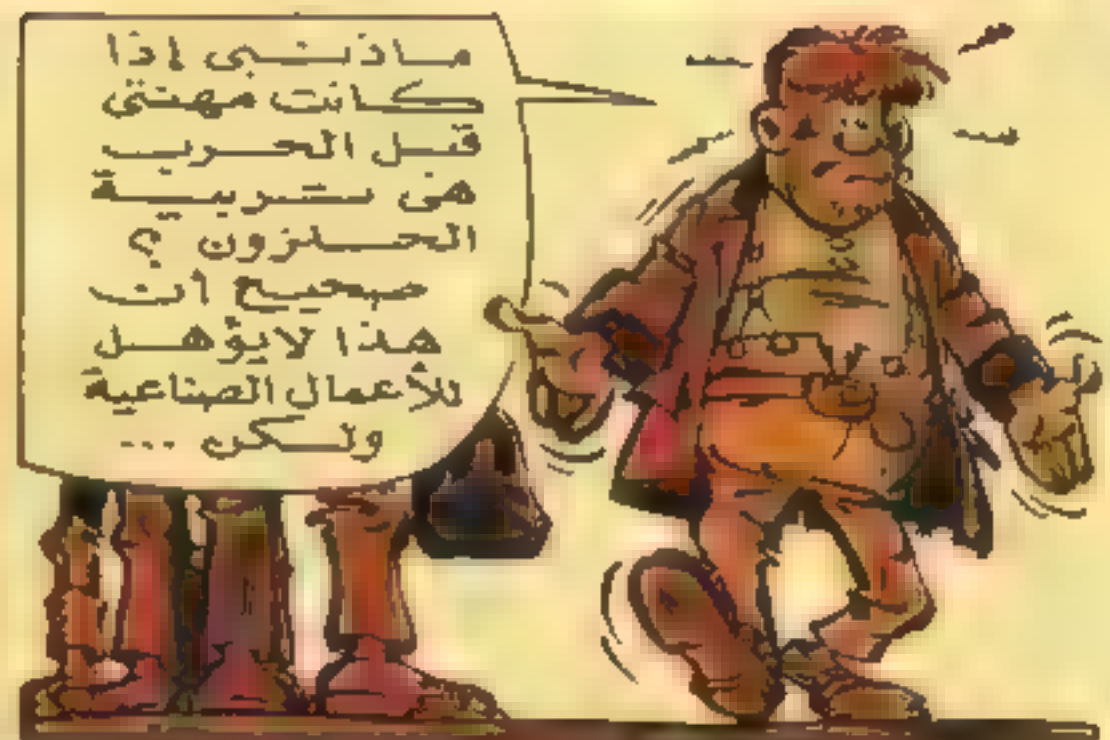 ماذنبى إذا
كانت مهنتى
قبل الحرب
هى تربية
الحلزون ؟
صحيح أن
هذا لايؤهل
للأعمال الصناعية
ولكن ...